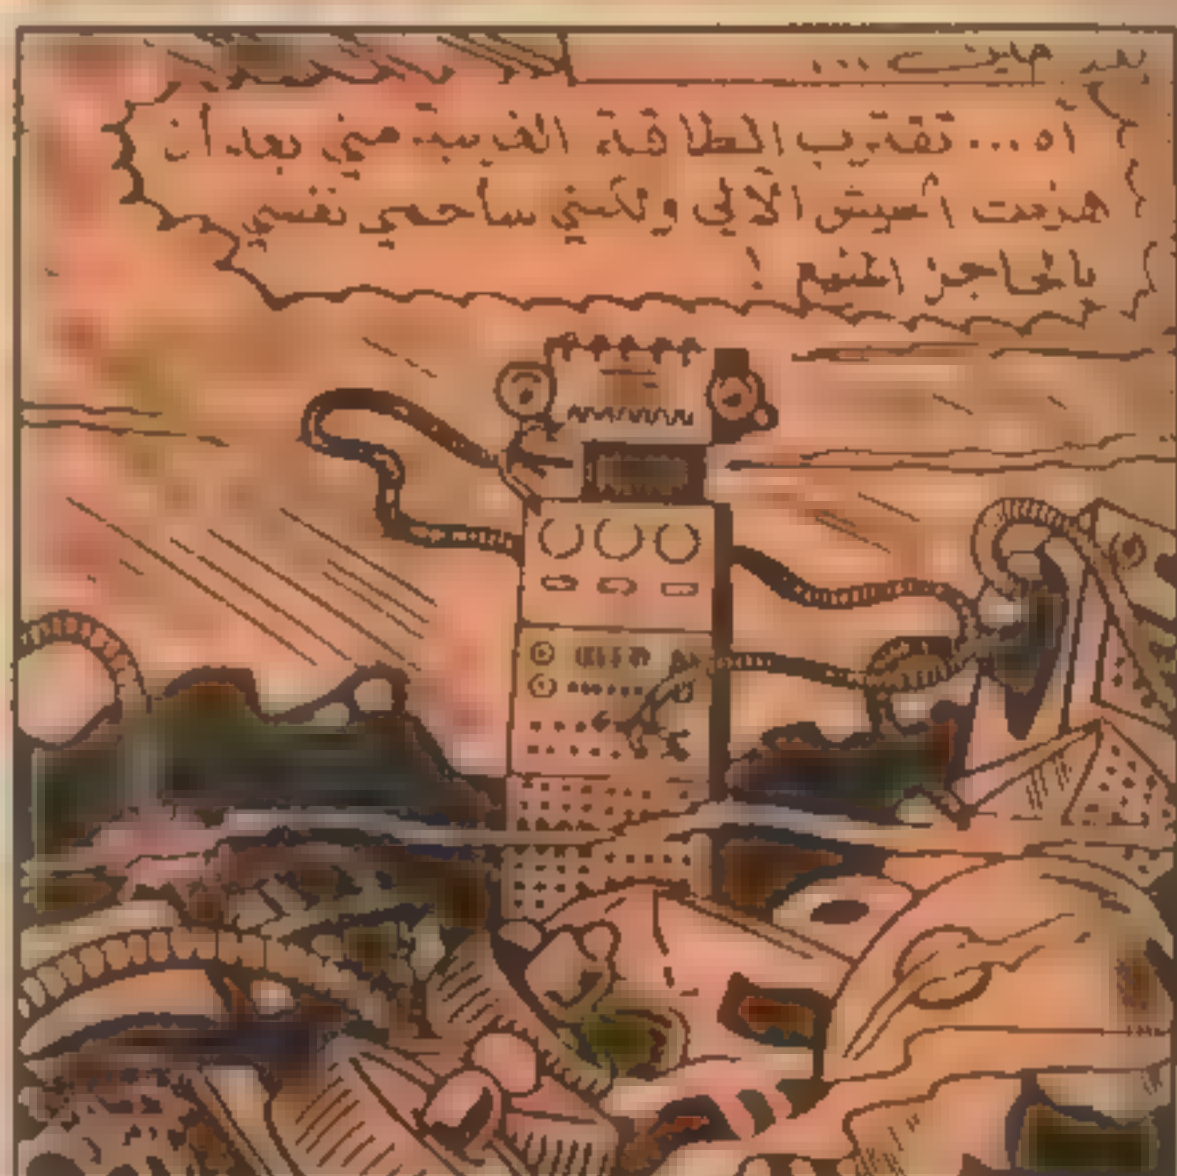 بعد حين ...
اه... تقترب الطاقة الغريبة مني بعد أن
هزمت الجيش الآلي ولكني سأحمي نفسي
بالحاجز المنيع !